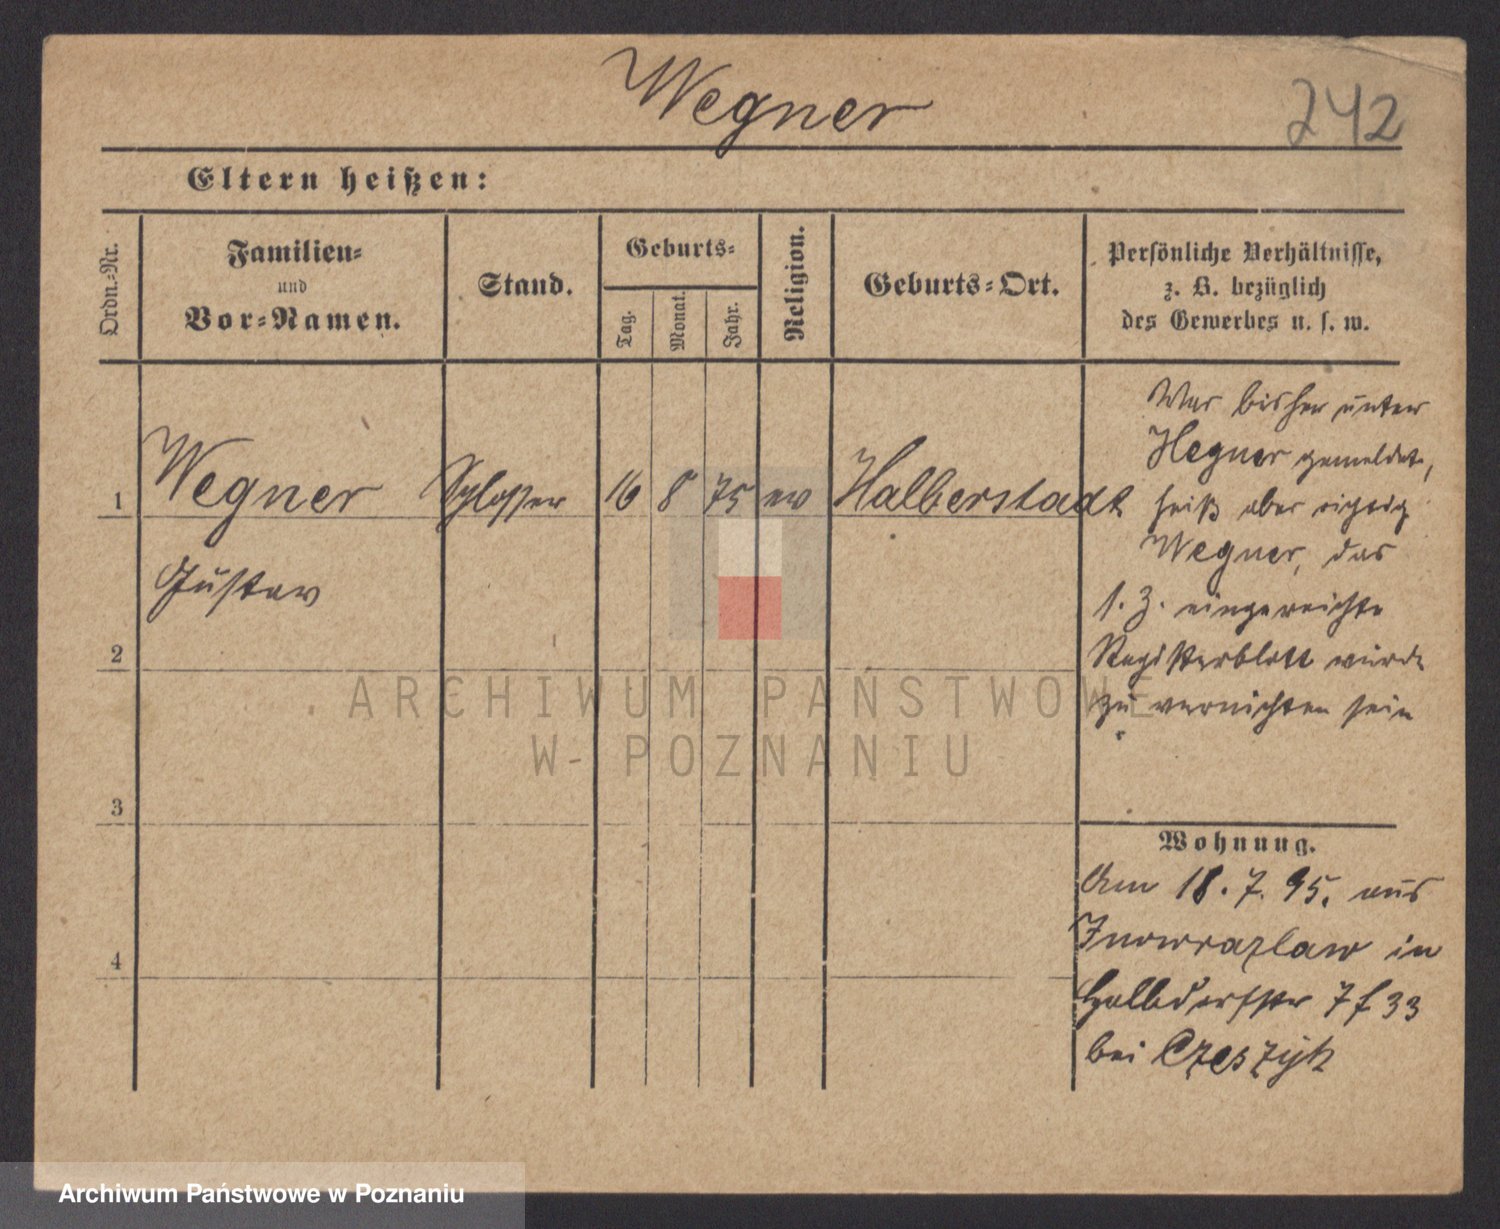 Wegner
242
Eltern heißen:
Ordn.-Nr.
Familien-
und
Vor-Namen.
Stand.
Geburts-
Tag.
Monat.
Jahr.
Religion.
Geburts-Ort.
Persönliche Verhältnisse,
z. B. bezüglich
des Gewerbes u. s. w.
1 Wegner Schlosser 16 8 75 ev Halberstadt
Gustav
2
3
4
War bisher unter
Hegner gemeldet,
heißt aber richtig
Wegner, das
s. Z. eingereichte
Registerblatt würde
zu vernichten sein
Wohnung.
Am 18.7.95. aus
Inowrazlaw in
Halbdorfstr 7 f 33
bei Czeszyk
ARCHIWUM PAŃSTWOWE
W POZNANIU
Archiwum Państwowe w Poznaniu